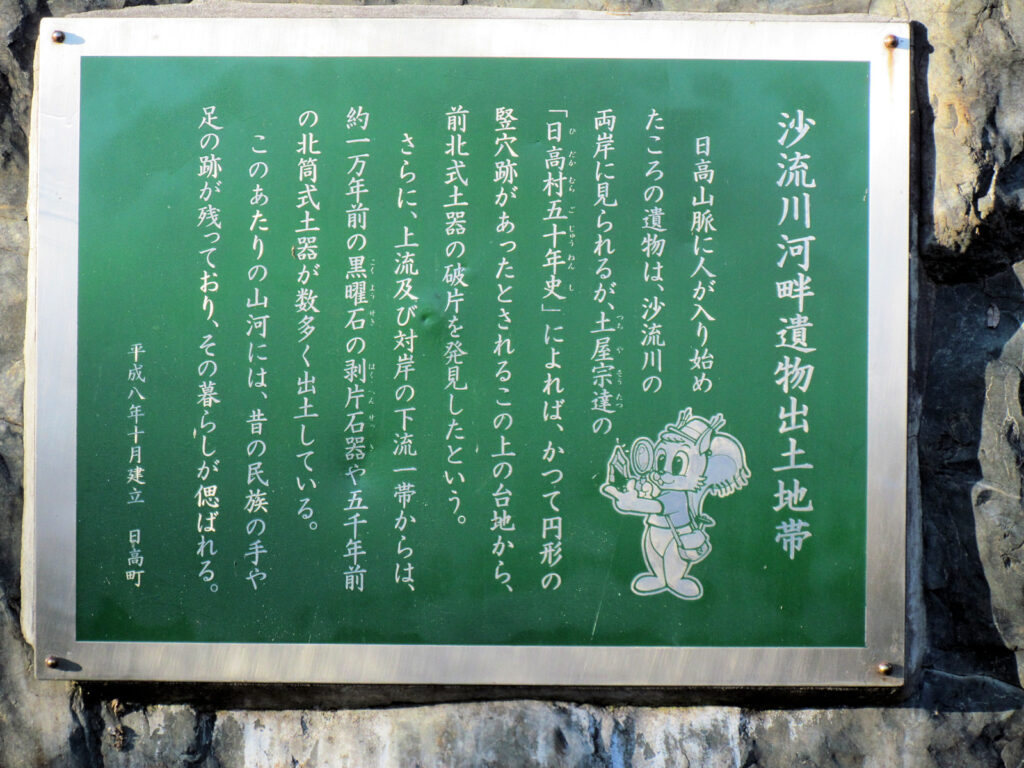 沙流川河畔遺物出土地帯
日高山脈に人が入り始め
たころの遺物は、沙流川の
両岸に見られるが、土屋宗達の
つちやそうたつ
「日高村五十年史」によれば、かつて円形の
ひだかむらごじゅうねんし
竪穴跡があったとされるこの上の台地から、
前北式土器の破片を発見したという。
さらに、上流及び対岸の下流一帯からは、
約一万年前の黒曜石の剥片石器や五千年前
こくようせきはくへんせっき
の北筒式土器が数多く出土している。
このあたりの山河には、昔の民族の手や
足の跡が残っており、その暮らしが偲ばれる。
平成八年十月建立 日高町